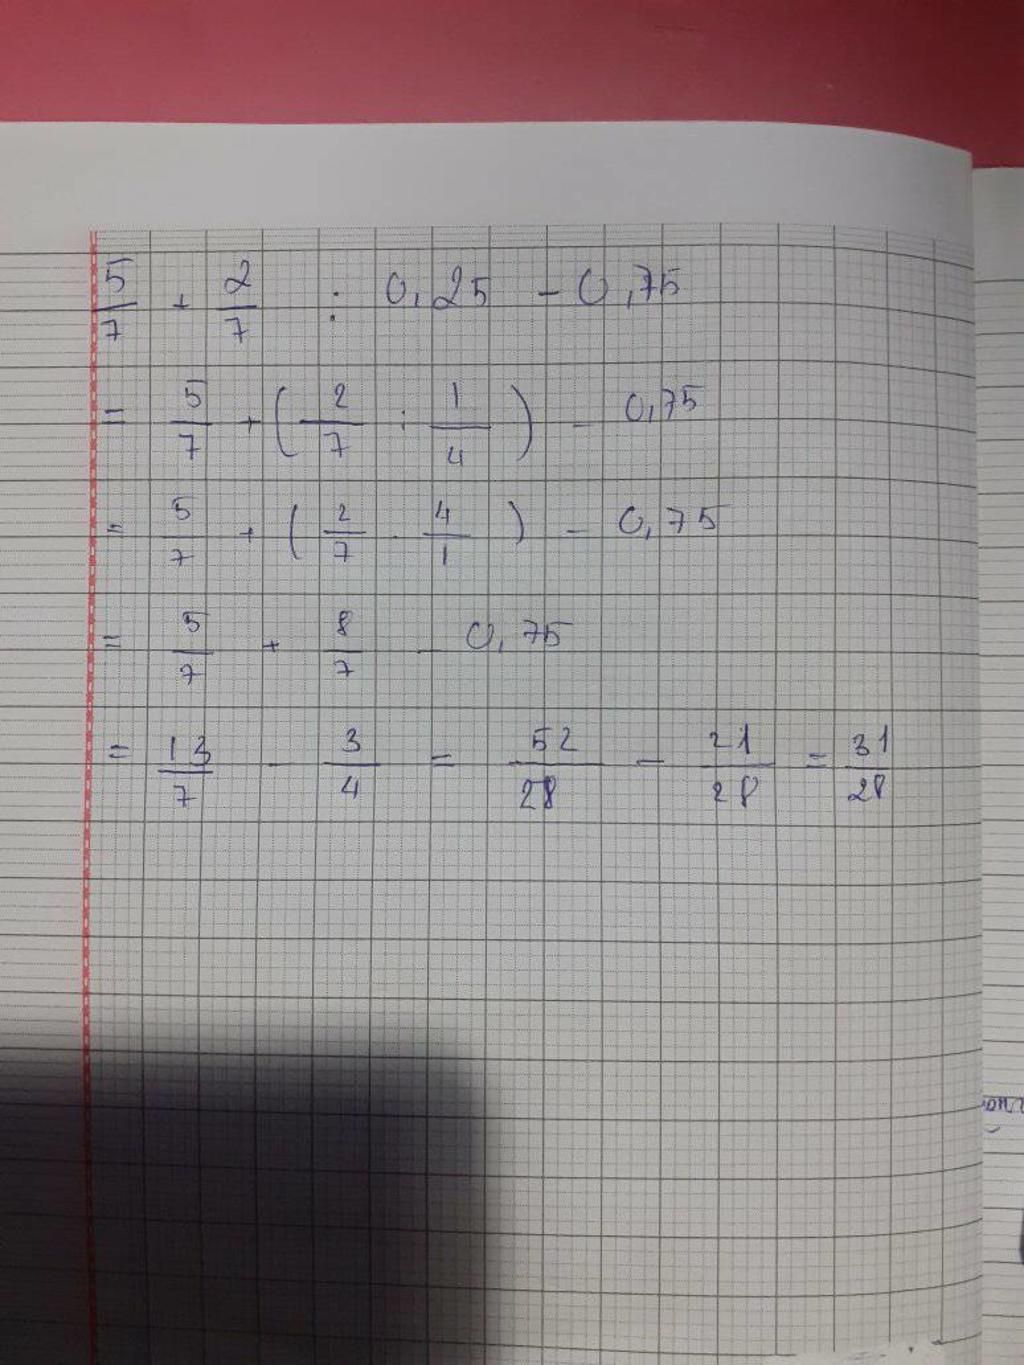 5/7 + 2/7 : 0,25 - 0,75
= 5/7 + (2/7 : 1/4) - 0,75
= 5/7 + (2/7 . 4/1) - 0,75
= 5/7 + 8/7 - 0,75
= 13/7 - 3/4 = 52/28 - 21/28 = 31/28